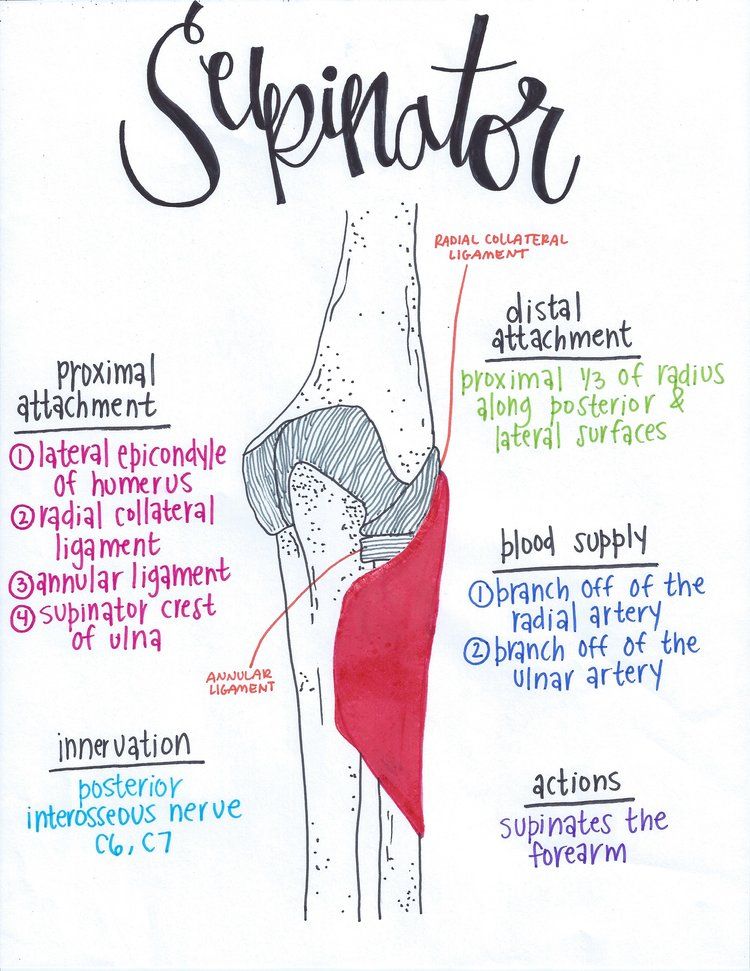 Supinator
RADIAL COLLATERAL
LIGAMENT
proximal
attachment
① lateral epicondyle
of humerus
② radial collateral
ligament
③ annular ligament
④ supinator crest
of ulna
distal
attachment
proximal 1/3 of radius
along posterior &
lateral surfaces
blood supply
① branch off of the
radial artery
② branch off of the
ulnar artery
ANNULAR
LIGAMENT
innervation
posterior
interosseous nerve
C6, C7
actions
supinates the
forearm